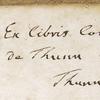 Ex Libris Co
de Thunn
Thunn